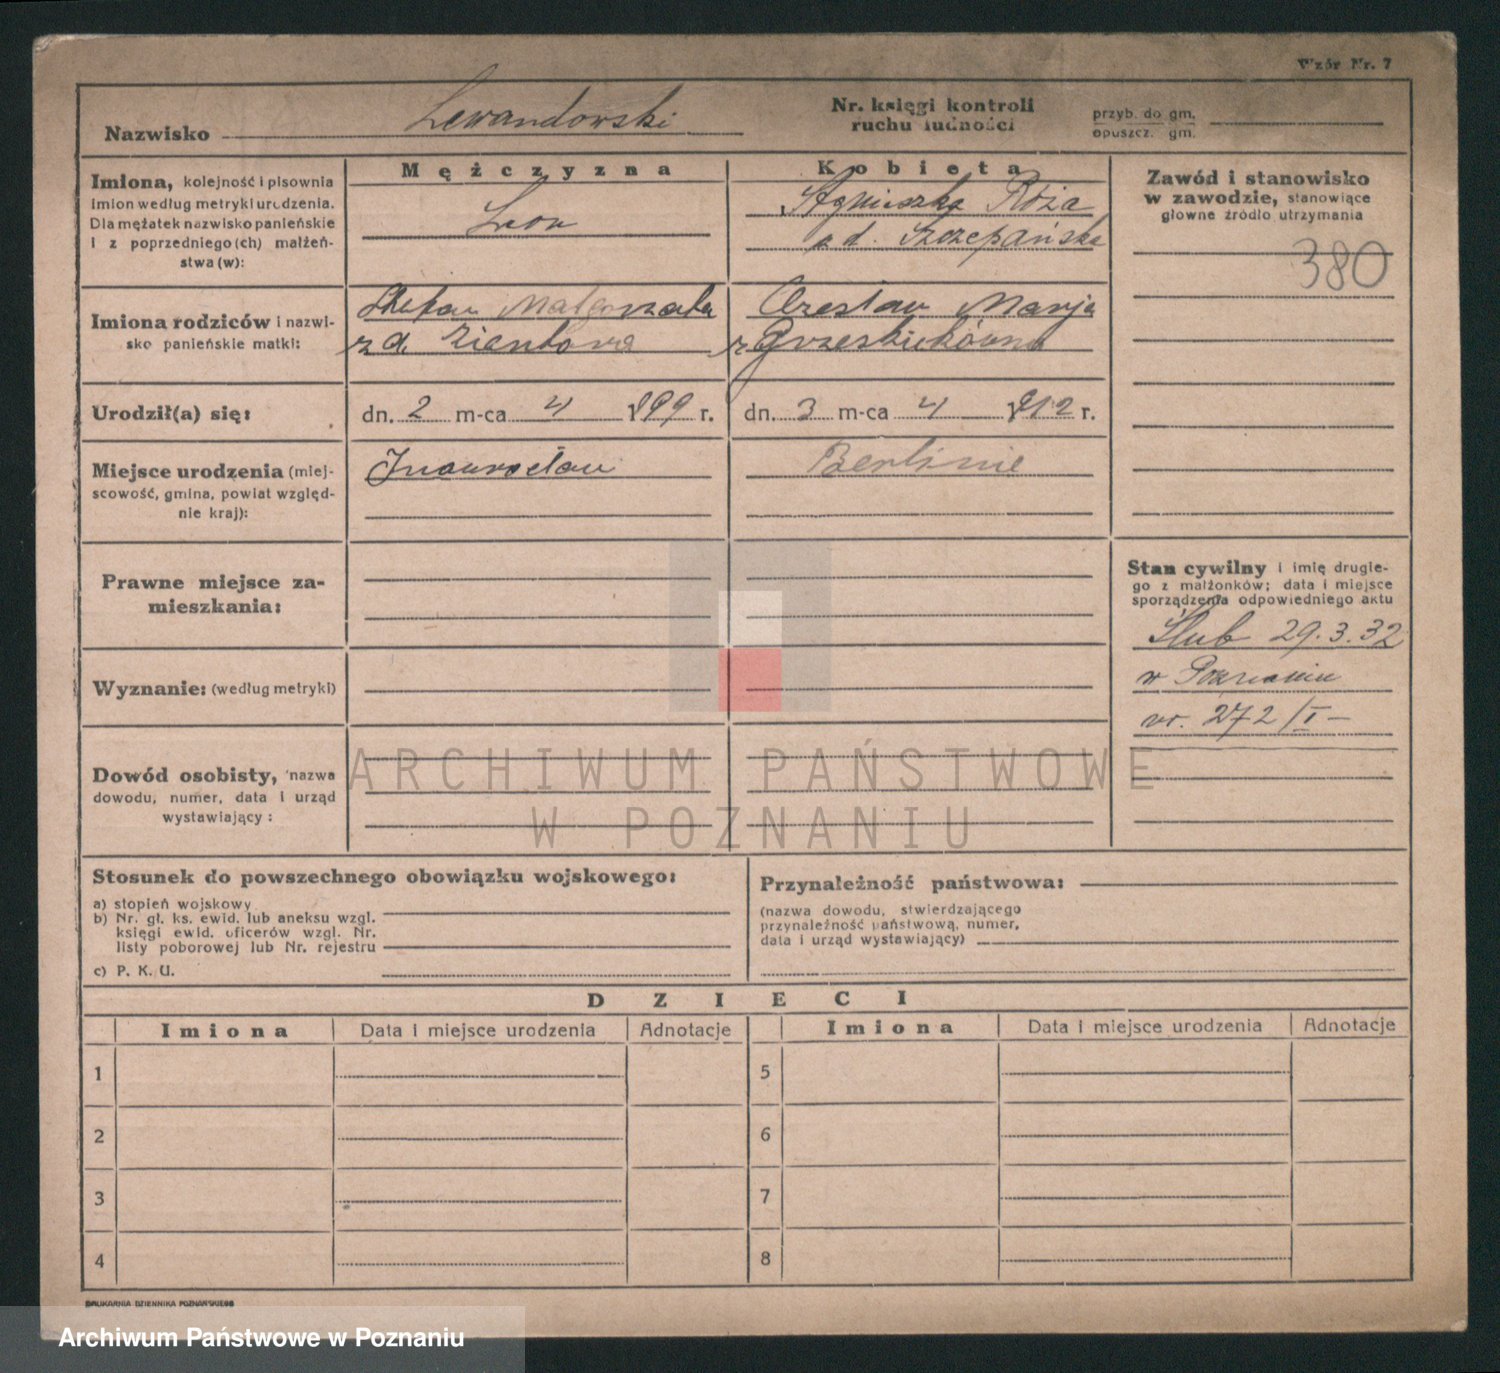 Wzór Nr. 7
Nazwisko Lewandowski
Nr. księgi kontroli
ruchu ludności
przyb. do gm.
opuszcz. gm.
Imiona, kolejność i pisownia
imion według metryki urodzenia.
Dla mężatek nazwisko panieńskie
i z poprzedniego (ch) małżeń-
stwa (w):
Mężczyzna
Leon
Kobieta
Agnieszka Róża
z d. Szczepańska
Zawód i stanowisko
w zawodzie, stanowiące
główne źródło utrzymania
380
Imiona rodziców i nazwi-
sko panieńskie matki:
Stefan Małgorzata
z d. Zientara
Czesław Marja
z Grześkików
Urodził(a) się:
dn. 2 m-ca 4 1899 r.
dn. 3 m-ca 4 1912 r.
Miejsce urodzenia (miej-
scowość, gmina, powiat względ-
nie kraj):
Inowrocław
Berlinie
Prawne miejsce za-
mieszkania:
Stan cywilny i imię drugie-
go z małżonków; data i miejsce
sporządzenia odpowiedniego aktu
Ślub 29.3.32
w Poznaniu
nr. 272/I-
Wyznanie: (według metryki)
Dowód osobisty, nazwa
dowodu, numer, data i urząd
wystawiający:
ARCHIWUM PAŃSTWOWE
W POZNANIU
Stosunek do powszechnego obowiązku wojskowego:
a) stopień wojskowy
b) Nr. gł. ks. ewid. lub aneksu wzgl.
księgi ewid. oficerów wzgl. Nr.
listy poborowej lub Nr. rejestru
c) P. K. U.
Przynależność państwowa:
(nazwa dowodu, stwierdzającego
przynależność państwową, numer,
data i urząd wystawiający)
DZIECI
Imiona Data i miejsce urodzenia Adnotacje Imiona Data i miejsce urodzenia Adnotacje
1 5
2 6
3 7
4 8
DRUKARNIA DZIENNIKA POZNAŃSKIEGO
Archiwum Państwowe w Poznaniu